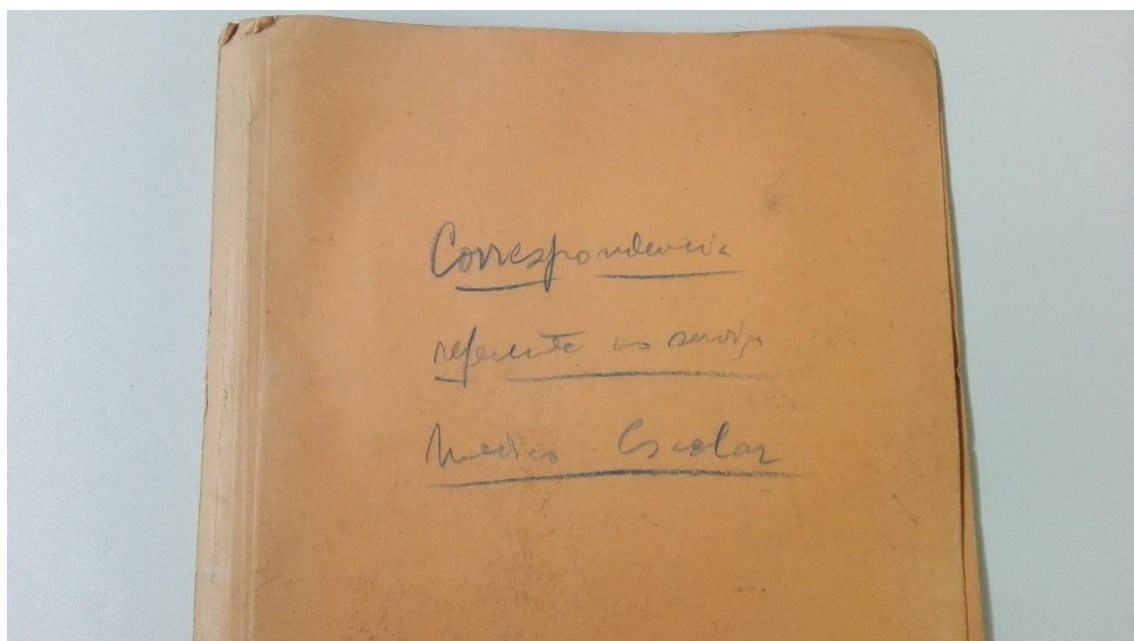 Correspondencia
referente ao serviço
Medico Escolar